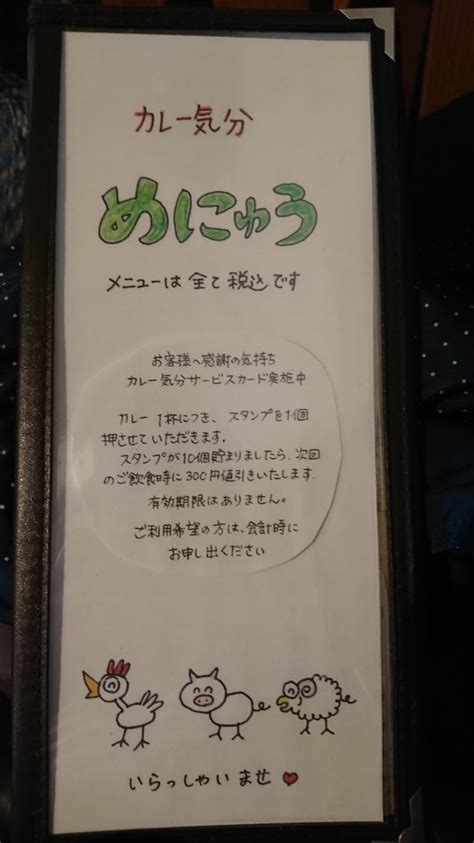 カレー気分
めにゅう
メニューは全て税込です
お客様へ感謝の気持ち
カレー気分サービスカード実施中
カレー1杯につき、スタンプを1個
押させていただきます。
スタンプが10個貯まりましたら、次回
のご飲食時に300円値引きいたします。
有効期限はありません。
ご利用希望の方は、会計時に
お申し出ください
いらっしゃいませ